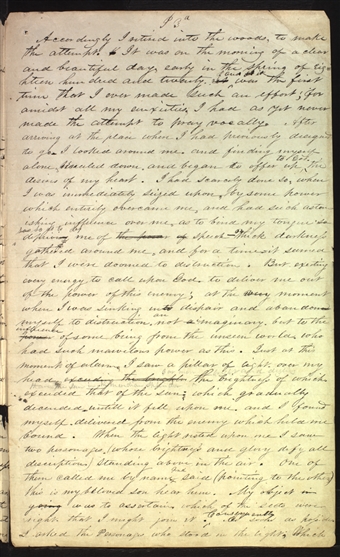 P 3d
Accordingly I retired into the woods, to make
the attempt. It was on the morning of a clear
and beautiful day, early in the spring of eig-
hteen hundred and twenty, and it was the first
time that I ever made such an effort, for
amidst all my anxieties I had as yet never
made the attempt to pray vocally. After
arriving at the place where I had previously designed
to go, I looked around me and finding myself
alone, kneeled down, and began to offer up the
desires of my heart. I had scarcely done so, when
I was immediately seized upon by some power
which entirely overcame me, and had such aston
ishing influence over me, as to bind my tongue so
gathered around me, and for a time it seemed
that I were doomed to destruction. But exerting
my energy to call upon God to deliver me out
of the power of this enemy, at the very moment
when I was sinking into despair and abandon
myself to destruction, not an imaginary, but to the
of some being from the unseen world, who
had such marvelous power as this. Just at this
moment of alarm, I saw a pillar of light over my
head the brightness of which
exceeded that of the sun, which gradually
descended untill it fell upon me, and I found
myself delivered from the enemy which held me
bound. When the light rested upon me I saw
two personages, (whose brightness and glory defy all
description) standing above me in the air. One of
them called me by name and said (pointing to the other)
this is my beloved son hear him. My object in
going was to ascertain which of the sects were
right that I might join it. Consequently as soon as possible
I asked the Personages who stood in the light, which